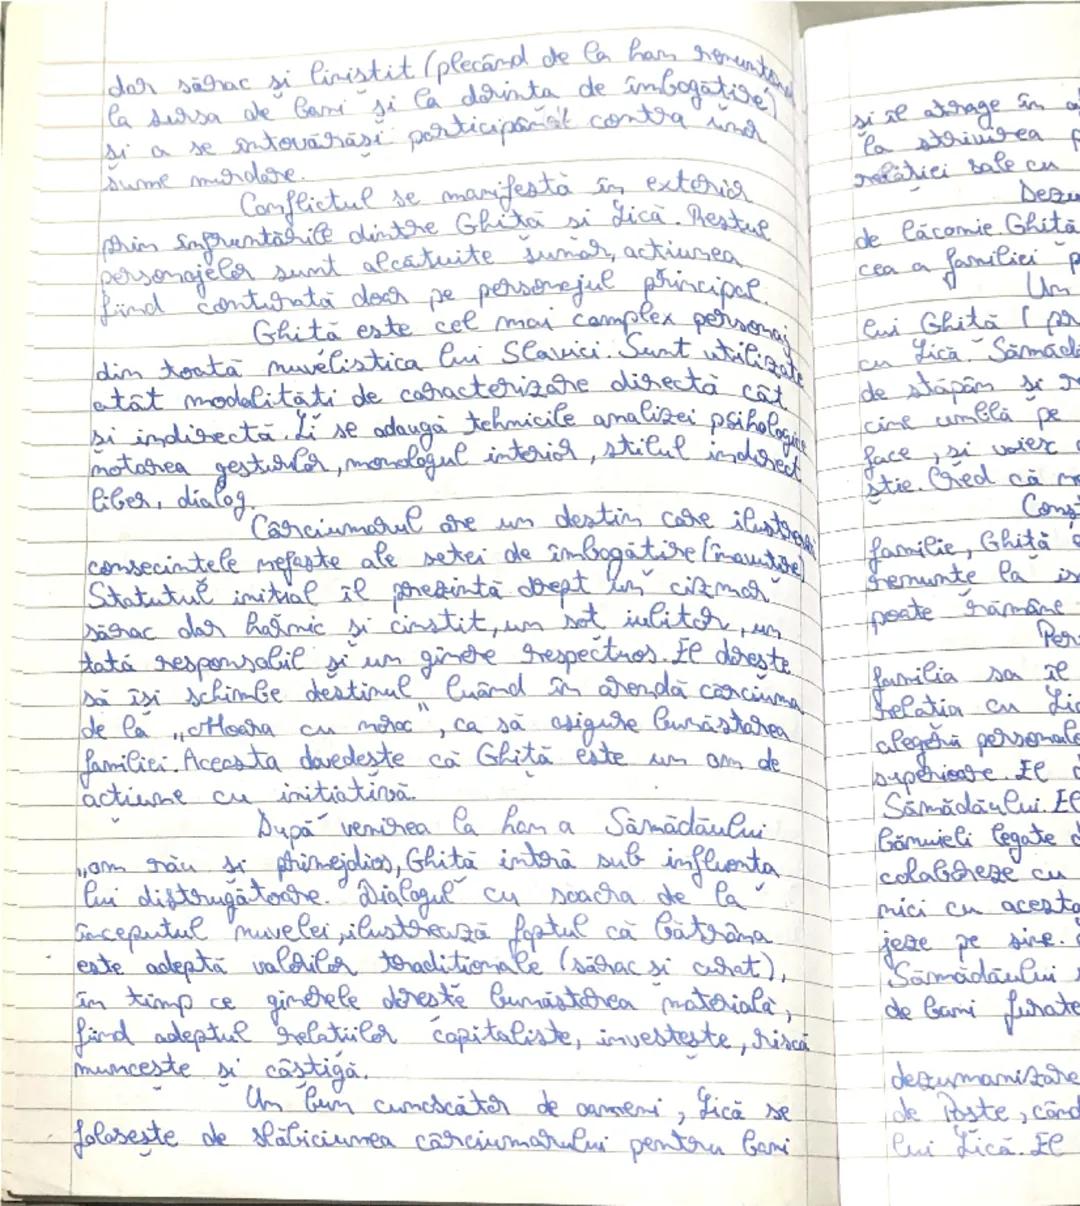 dar sărac și liniștit (plecând de la han renunțând
la sursa de bani și la dorința de îmbogățire)
și a se întovărăși participând contra unor
sume murdare.
Conflictul se manifestă în exterior
prin înfruntările dintre Ghiță și Lică. Restul
personajelor sunt alcătuite sumar, acțiunea
fiind conturată doar pe personajul principal.
Ghiță este cel mai complex personaj
din toată nuvelistica lui Slavici. Sunt utilizate
atât modalități de caracterizare directă cât
și indirectă. Li se adaugă tehnicile analizei psihologice
notarea gesturilor, monologul interior, stilul indirect
liber, dialog.
Cârciumarul are un destin care ilustrează
consecințele nefaste ale setei de îmbogățire (înavuțire)
Statutul inițial îl prezintă drept un cizmar
sărac dar harnic și cinstit, un soț iubitor, un
tată responsabil și un ginere respectuos. El dorește
să își schimbe destinul luând în arendă cârciuma
de la „Moara cu noroc", ca să asigure bunăstarea
familiei. Aceasta dovedește că Ghiță este un om de
acțiune cu inițiativă.
După venirea la han a Sămădăului
„om rău și primejdios, Ghiță intră sub influența
lui distrugătoare. Dialogul cu soacra de la
începutul nuvelei, ilustrează faptul că bătrâna
este adeptă valorilor tradiționale (sărac și curat),
în timp ce ginerele dorește bunăstarea materială,
fiind adeptul relațiilor capitaliste, investește, riscă
muncește și câștigă.
Un bun cunoscător de oameni, Lică se
folosește de slăbiciunea cârciumarului pentru bani
și îl atrage în
la strivirea
relației sale cu
de lăcomie Ghiță
cea a familiei
Un
lui Ghiță (
cu Lică. Sămădă
de stăpân și
cine umblă pe
face, și voiesc
știe. Cred că
familie, Ghiță
renunțe la
poate rămâne
familia sa îl
relația cu
alegerii personale
superioare. El
Sămădăului. El
bănuieli legate
colaboreze cu
mici cu
pe sine.
Sămădăului
de bani furate
dezumanizare
de Paște, când
lui Lică. El